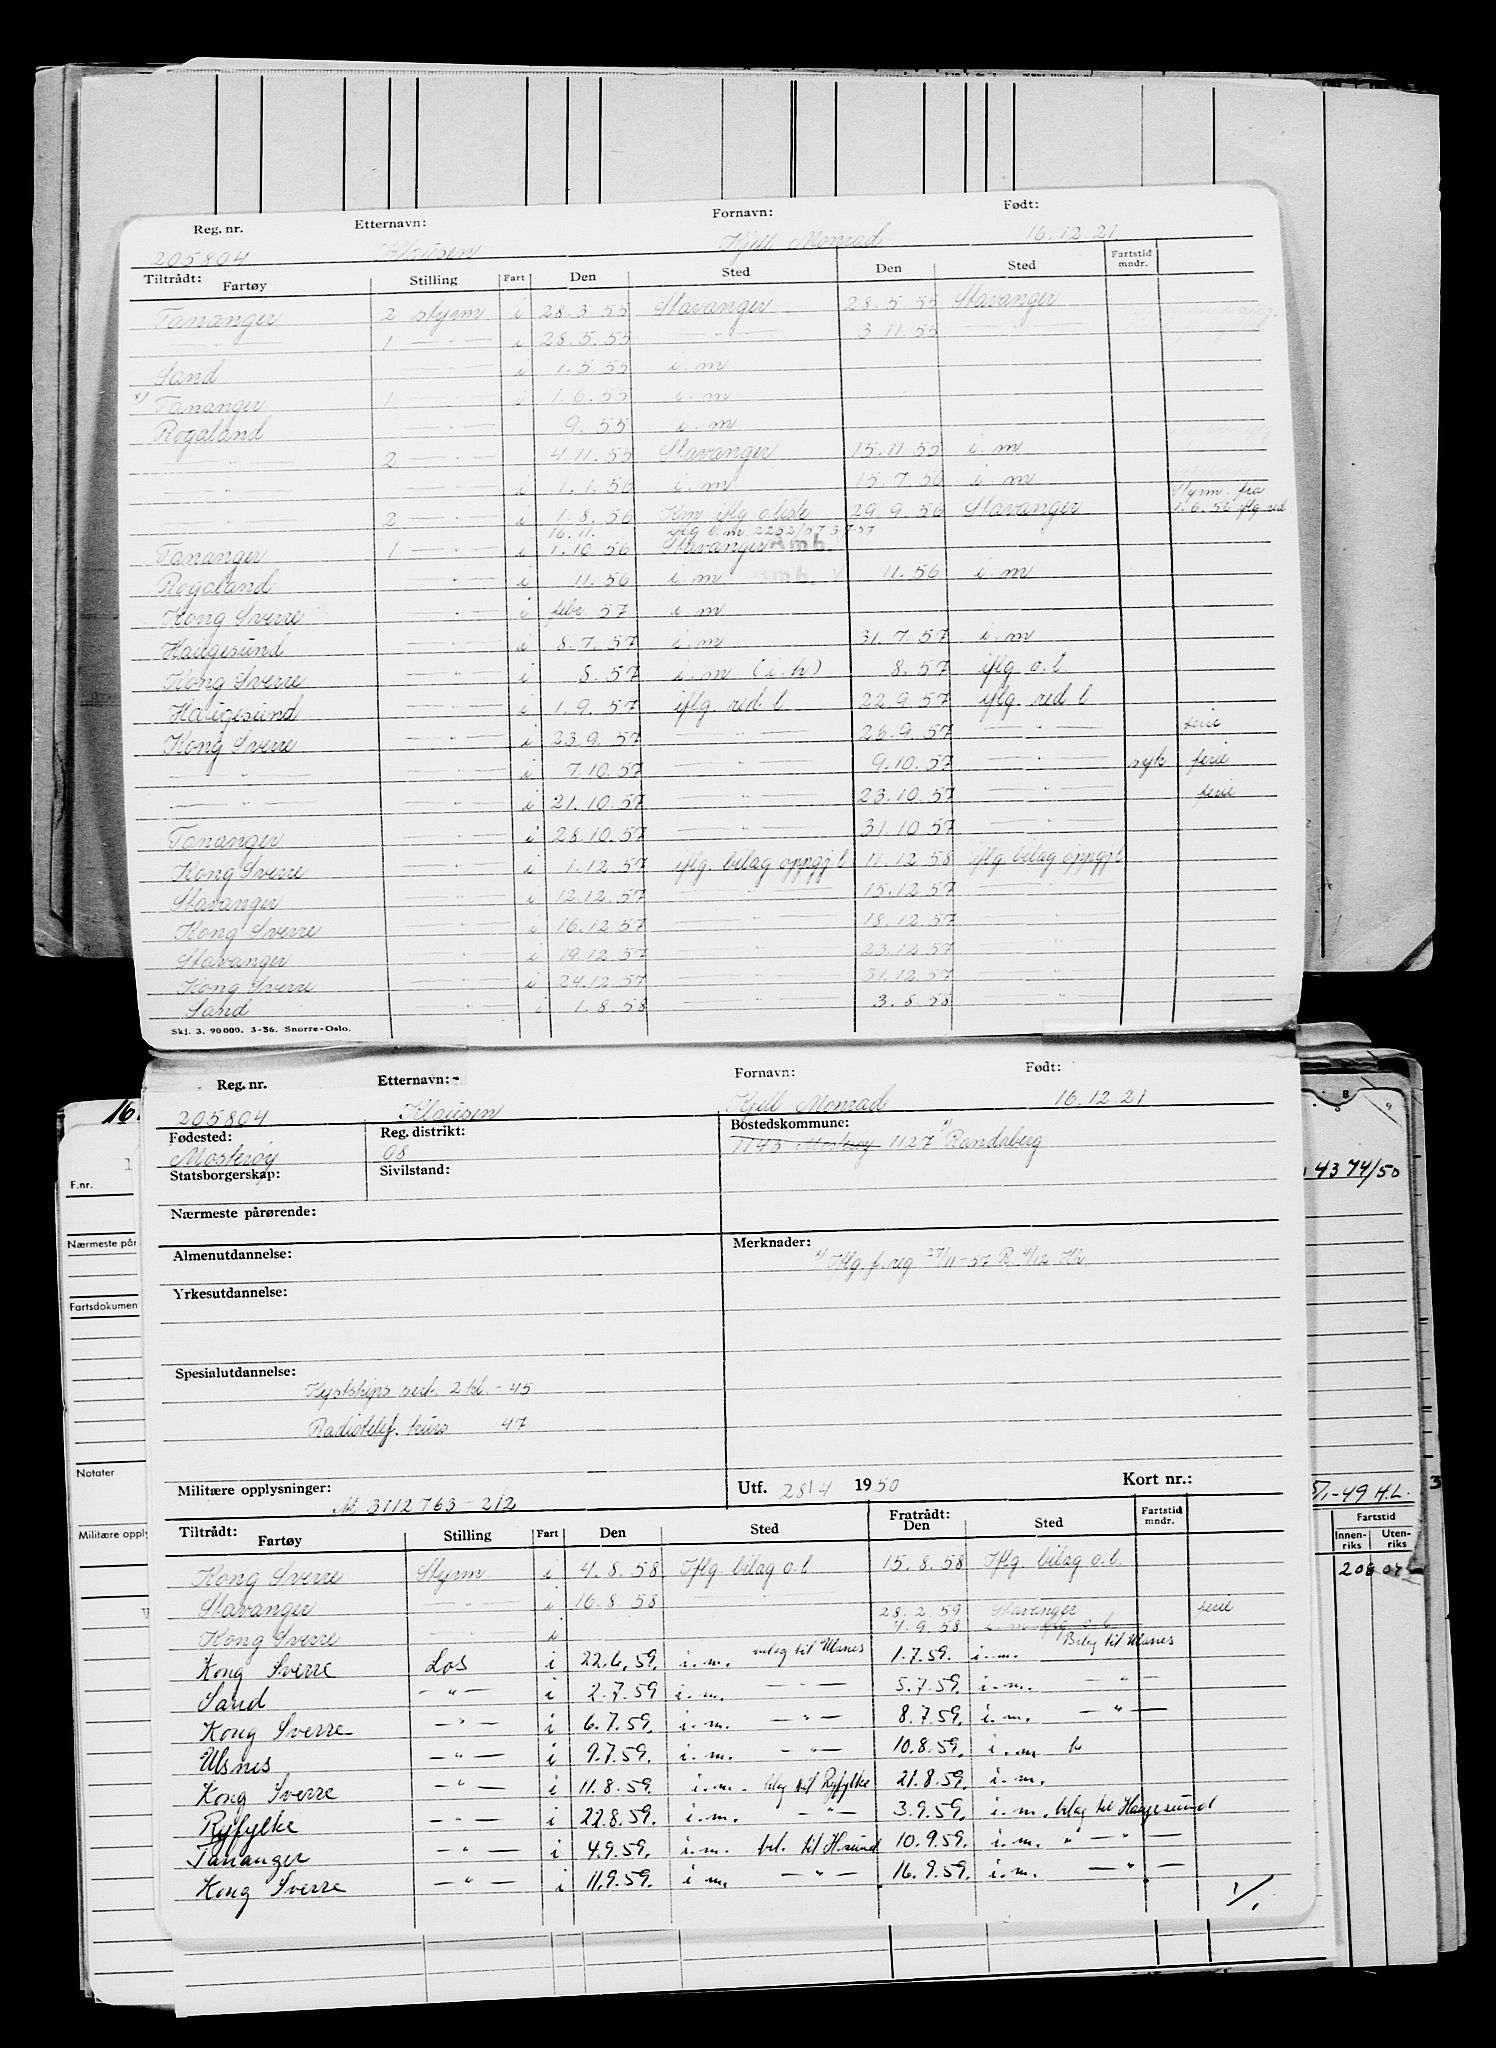 Reg. nr. Etternavn: Fornavn: Født:
205804 Klausen Kjell Monrad 16.12.21
Tiltrådt: Fartøy Stilling Fart Den Sted Den Sted Fartstid mndr.
Tananger 2 styrm i 28.3.55 Stavanger 28.5.55 Stavanger
— " — 1 — " — i 28.5.55 — " — 3.11.55 — " —
Sand — " — i 1.5.55 i.m
x) Tananger 1 — " — i 1.6.55 i.m
Rogaland — " — 9.55 i.m
— " — 2 — " — 4.11.55 Stavanger 15.11.55 i.m
— " — — " — i 1.1.56 i.m 15.7.56 i.m
Styrm. fra
— " — 2 — " — i 1.8.56 Hm iflg o.liste 29.9.56 Stavanger 1.6.56 iflg red
16.11. iflg b.m. 2252/57 3/7-57
Tananger 1 — " — i 1.10.56 Stavanger Amb.
Rogaland — " — i 11.56 i.m 11.56 i.m
Kong Sverre — " — i febr. 57 i.m
Haugesund — " — i 8.7.57 i.m 31.7.57 i.m
Kong Sverre — " — i 8.57 i.m (i.h) 8.57 iflg. o.l.
Haugesund — " — i 1.9.57 iflg. red l 22.9.57 iflg. red l
Kong Sverre — " — i 23.9.57 — " — 26.9.57 — " — ferie
— " — — " — i 7.10.57 — " — 9.10.57 — " — syk ferie
— " — — " — i 21.10.57 — " — 23.10.57 — " — ferie
Tananger — " — i 28.10.57 — " — 31.10.57 — " —
Kong Sverre — " — i 1.12.57 iflg. bilag oppgj l 11.12.58 iflg bilag oppgj l
Stavanger — " — i 12.12.57 — " — 15.12.57 — " —
Kong Sverre — " — i 16.12.57 — " — 18.12.57 — " —
Stavanger — " — i 19.12.57 — " — 23.12.57 — " —
Kong Sverre — " — i 24.12.57 — " — 31.12.57 — " —
Sand — " — i 1.8.58 — " — 3.8.58 — " —
Skj. 3. 90000. 3-56. Snorre-Oslo.
Reg. nr. Etternavn: Fornavn: Født:
205804 Klausen Kjell Monrad 16.12.21
Fødested: Reg. distrikt: Bostedskommune:
Mosterøy 68 1143 Mosterøy 1127 x) Randaberg
Statsborgerskap: Sivilstand:
Nærmeste pårørende:
Almenutdannelse: Merknader:
x) Iflg. f.reg 27/11-57 R. 4/12 Kb
Yrkesutdannelse:
Spesialutdannelse:
Kystskips sert. 2 kl. - 45
Radiotelef. kurs 47
Militære opplysninger: Utf. 28/4 1950 Kort nr.:
M 3112763-212
Tiltrådt: Fartøy Stilling Fart Den Sted Fratrådt: Den Sted Fartstid mndr.
Kong Sverre Styrm i 4.8.58 Iflg bilag o.l. 15.8.58 Iflg. bilag o.l.
Stavanger — " — i 16.8.58 — " — 28.2.59 Stavanger ferie
Kong Sverre i 4.9.58
Kong Sverre Los i 22.6.59. i.m. bilag til Ulsnes 1.7.59. i.m. Bilag til Ulsnes
Sand — " — i 2.7.59 i.m. — " — 5.7.59. i.m. — " —
Kong Sverre — " — i 6.7.59. i.m. — " — 8.7.59. i.m. — " —
Ulsnes — " — i 9.7.59. i.m. — " — 10.8.59. i.m.
Kong Sverre — " — i 11.8.59. i.m. bilag til Ryfylke 21.8.59. i.m.
Ryfylke — " — i 22.8.59. i.m. — " — 3.9.59. i.m. bilag til Haugesund
Tananger — " — i 4.9.59. i.m. bil. til H.sund 10.9.59. i.m. " — " —
Kong Sverre — " — i 11.9.59. i m. — " — 16.9.59. i.m. — " —
1/1
16.
F.nr.
Nærmeste pår
Fartsdokumen
Notater
Militære opply
4374/50
5/1-49 H.L. 3
Fartstid
Innenriks Utenriks